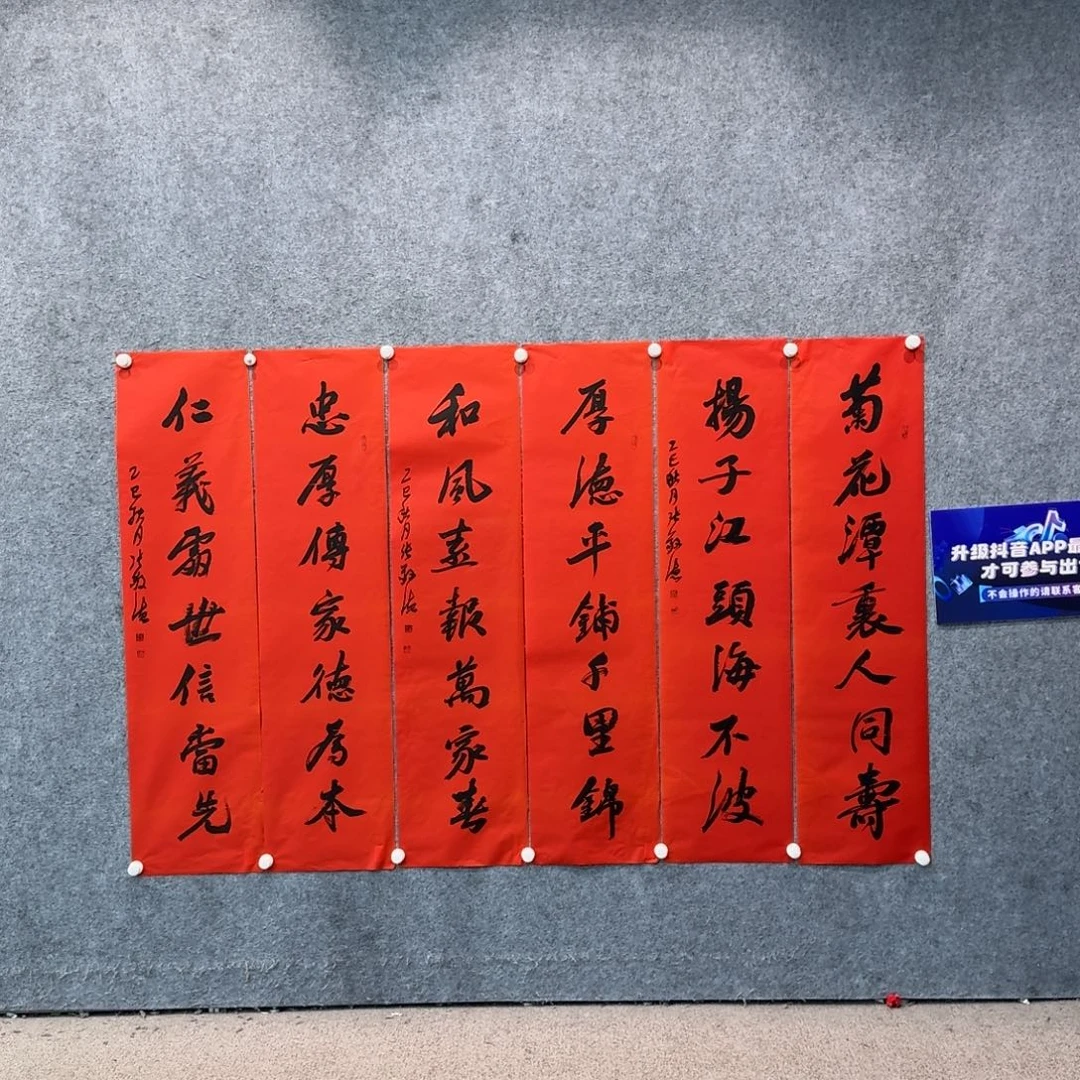 菊花潭裏人同壽
揚子江頭海不波
乙巳秋月
厚德平鋪千里錦
和風喜報萬家春
乙巳秋月
忠厚傳家德為本
仁義處世信當先
乙巳秋月
升级抖音APP最
才可参与出
不会操作的请联系客